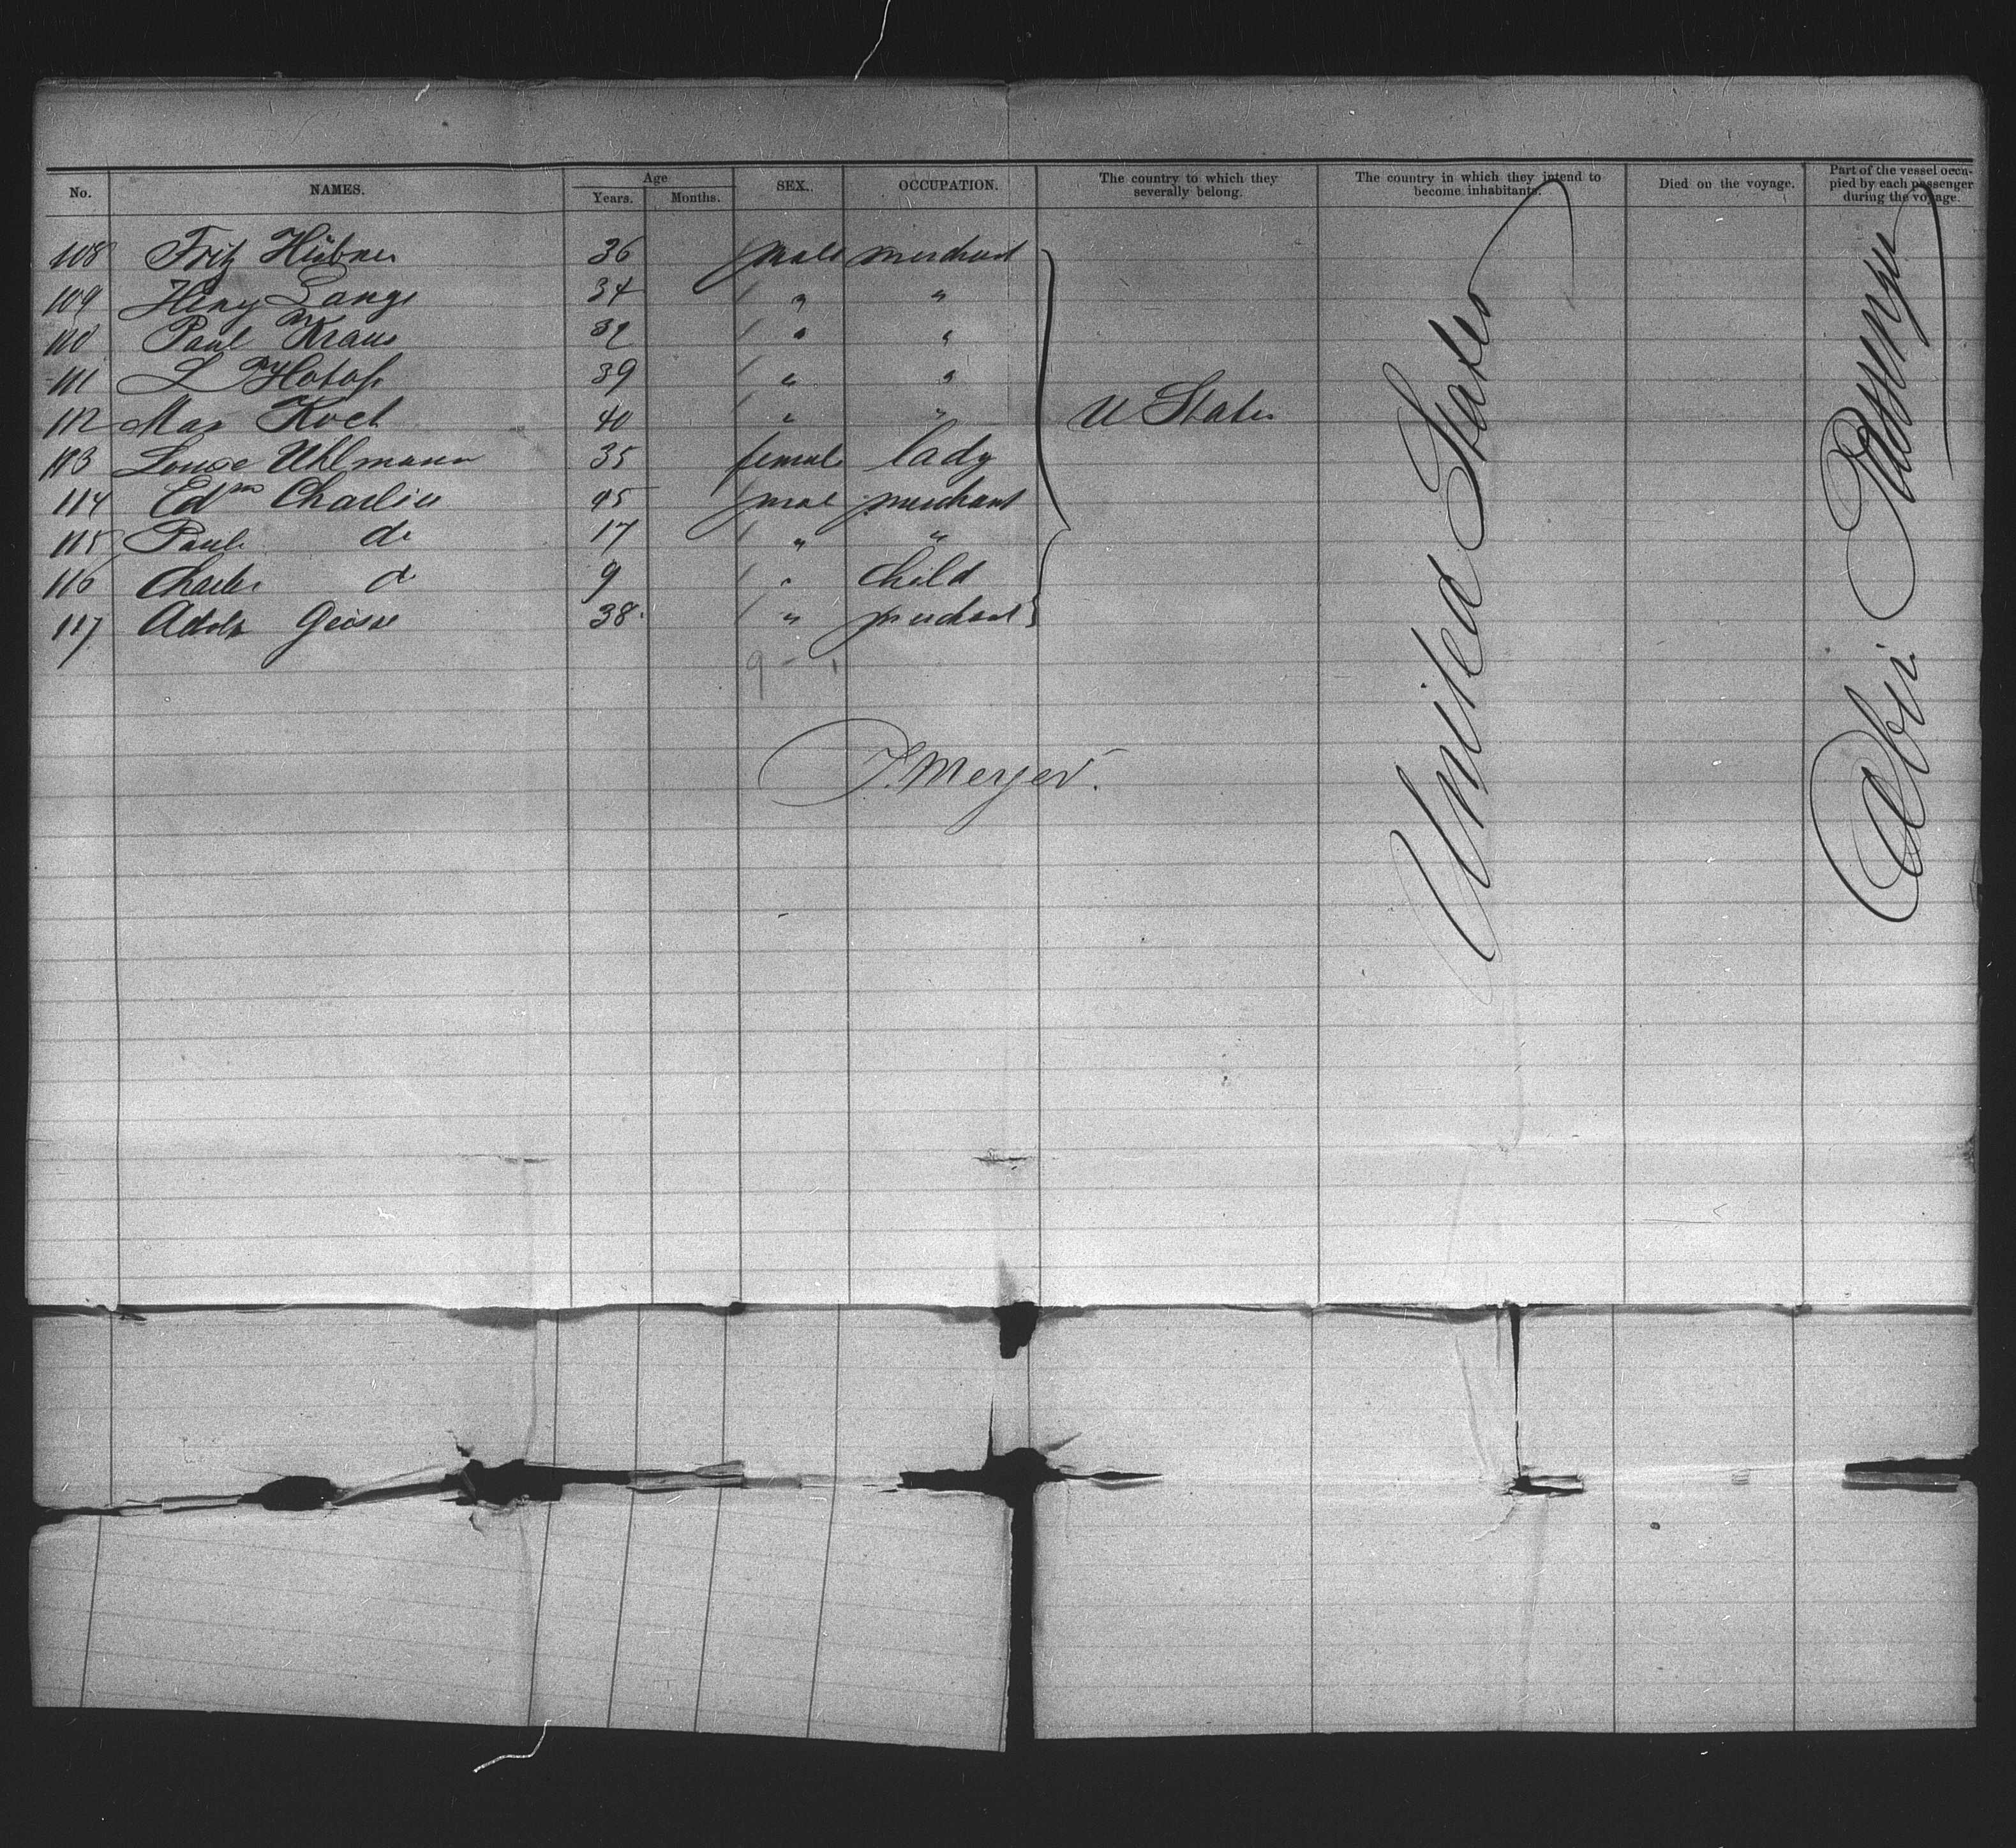 No. NAMES. Age Years. Months. SEX. OCCUPATION. The country to which they severally belong. The country in which they intend to become inhabitants. Died on the voyage. Part of the vessel occupied by each passenger during the voyage.
108 Fritz Hübner 36 male merchant
109 Henry Lange 34 " "
110 Paul Kraus 32 " "
111 L Hotop 39 " "
112 Max Koch 40 " " U States
113 Louise Uhlmann 35 female lady
114 Edm Charlier 45 male merchant
115 Paul do 17 " "
116 Charles do 9 " child
117 Adolf 38 " merchant
9 - 1
United States
Cabin Passenger
J. Meyer.